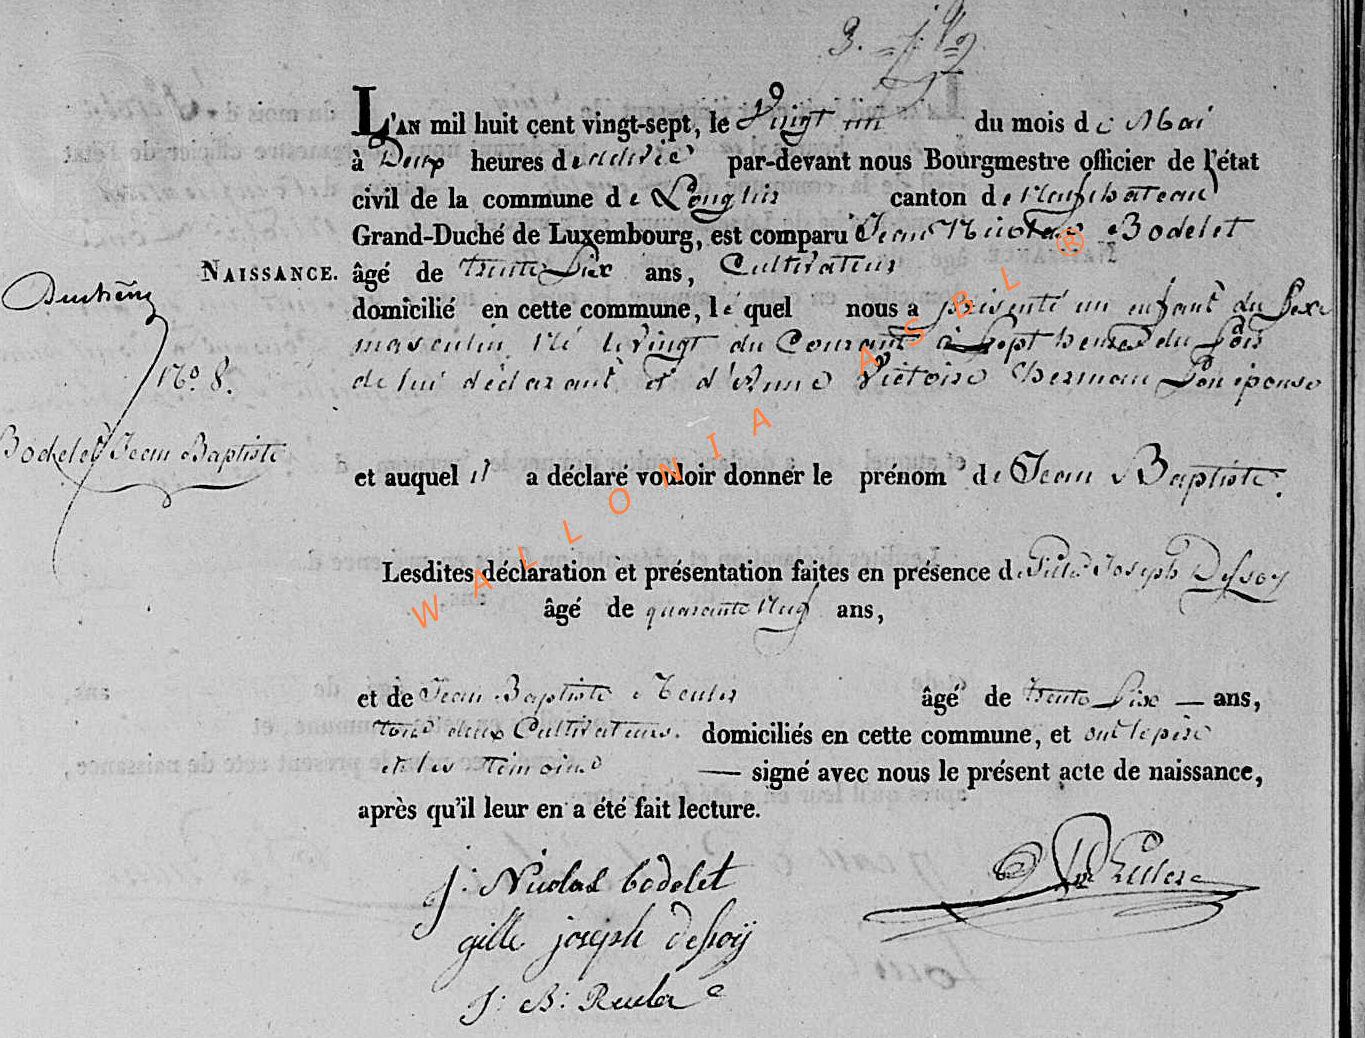 L'AN mil huit cent vingt-sept, le Vingt un du mois de Mai
à Deux heures de relevée par-devant nous Bourgmestre officier de l'état
civil de la commune de Longlier canton de Neufchateau
Grand-Duché de Luxembourg, est comparu Jean Nicolas Bodelet
NAISSANCE. âgé de trente Six ans, Cultivateur
domicilié en cette commune, lequel nous a présenté un enfant du Sexe
masculin, Né le vingt du Courant à Sept heures du Soir
de lui déclarant et d'Anne Victoire Herman Son épouse
N° 8.
Bodelet Jean Baptiste
et auquel il a déclaré vouloir donner le prénom de Jean Baptiste.
Lesdites déclaration et présentation faites en présence de Gille Joseph Dessoy
âgé de quarante Neuf ans,
et de Jean Baptiste Reuler âgé de trente Six — ans,
tous deux Cultivateurs. domiciliés en cette commune, et ont le père
et les Témoins — signé avec nous le présent acte de naissance,
après qu'il leur en a été fait lecture.
J: Nicolas bodelet
gille joseph dessoÿ
J: B: Reuler
WALLONIA ASBL ®